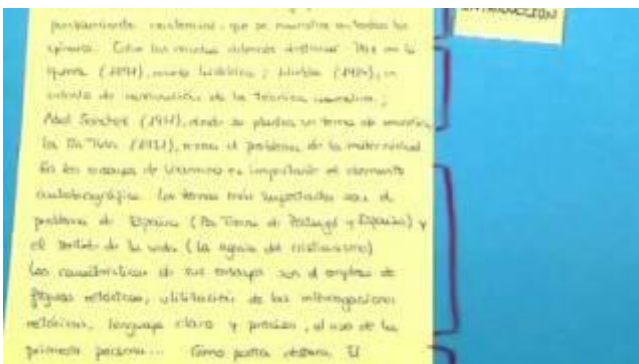 pensamiento existencial, que se muestra en todas las
épocas. Entre las novelas debemos destacar Paz en la
guerra (1897), novela histórica; Niebla (1914), un
de renovación de la técnica narrativa;
Abel Sánchez (1917), donde se plantea un tema de envidia,
La Tía Tula (1921), el problema de la maternidad
En los ensayos de Unamuno es importante el elemento
autobiográfico. Los temas más importantes son el
problema de España (Por Tierras de Portugal y España) y
el sentido de la vida (la agonía del cristianismo)
Las características de sus ensayos son el empleo de
figuras retóricas, utilización de las interrogaciones
retóricas, lenguaje claro y preciso, el uso de la
primera persona... Como poeta destaca El
INTRODUCCIÓN